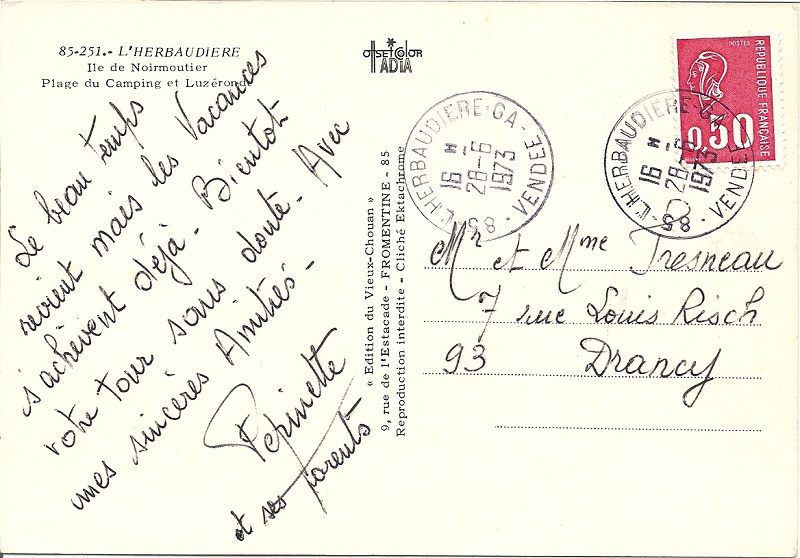 85-251.- L'HERBAUDIERE
Ile de Noirmoutier
Plage du Camping et Luzéronde
OFFSETCOLOR
IADIA
Le beau temps
revient mais les Vacances
s'achèvent déjà. Bientôt
votre tour sans doute. Avec
mes sincères Amitiés -
Perinette
et ses parents
« Edition du Vieux-Chouan »
9, rue de l'Estacade - FROMENTINE - 85
Reproduction interdite - Cliché Ektachrome
L'HERBAUDIERE-GA - VENDEE
16 H
28-6
1973
85
L'HERBAUDIERE-GA - VENDEE
16 H
28-6
1973
85
POSTES
REPUBLIQUE FRANÇAISE
0,50
Mr et Mme Tresneau
7 rue Louis Risch
93 Drancy